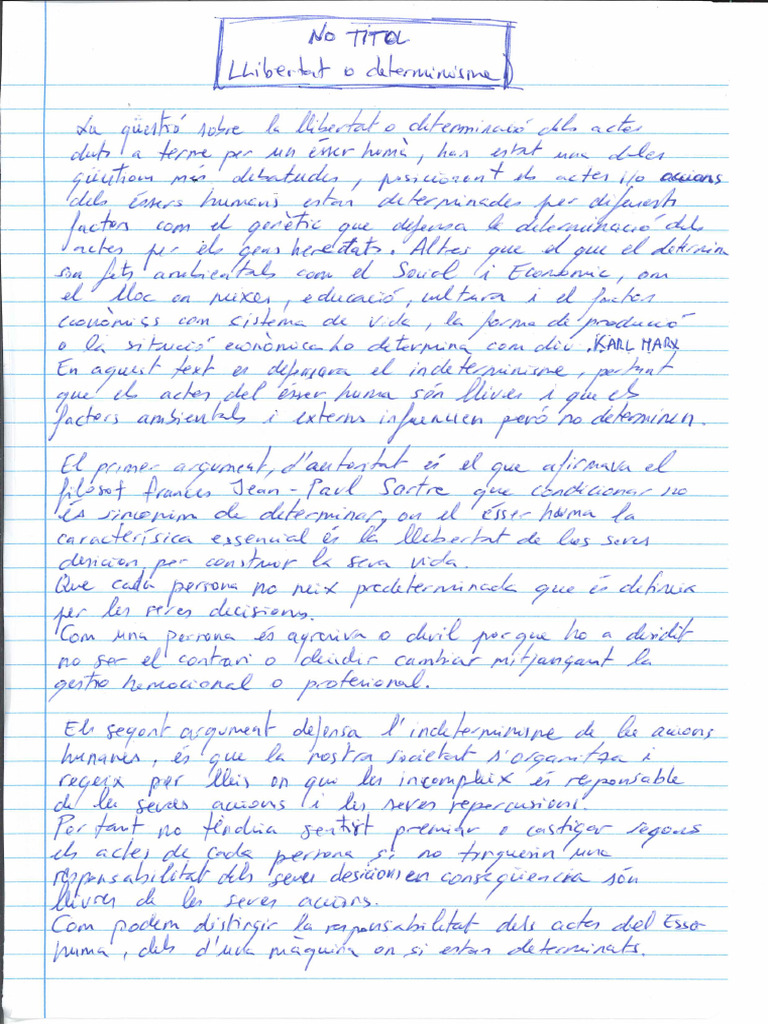 NO TITOL
LLibertat o determinisme
La qüestió sobre la llibertat o determinació dels actes
duts a terme per un ésser humà, han estat una deles
qüestions més debatudes, posicionant els actes i/o accions
dels éssers humans estan determinades per diferents
factors com el genètic que defensa la determinació dels
actes per els gens heredtats. Altres que el que el determina
son fets ambientals com el Social i Econòmic, on
el lloc on neixes, educació, cultura i el factors
econòmics com sistema de vida, la forma de producció
o la situció econòmica ho determina com diu. KARL MARX
En aquest text es defensara el indeterminisme, pertant
que els actes del ésser huma són lliures i que els
factors ambientals i externs influencien però no determinen.
El primer argument, d'autoritat és el que afirmava el
filòsof frances Jean-Paul Sartre que condicionar no
és sinconim de determinar, on el ésser huma la
caracterísica essencial és la llibertat de les seves
desicion, per construir la seva vida.
Que cada persona no neix predeterminada que és defineix
per les seves decisions.
Com una persona és agresiva o devil porque ho a dividit
no ser el contrari o decidir cambiar mitjançant la
gestio hemocional o profesional.
Els segont argument defensa l'indeterminisme de les accions
humanes, és que la nostra societat s'organitza i
regeix per lleis on qui les incompleix és responsable
de le seves accions i les seves repercusions.
Per tant no tèndria sentit premiar o castigar segons
els actes de cada persona si no tinguesin una
responsabilitat dels seves desicions en conseqüencia són
lliures de les seves accions.
Com podem distingir la responsabilitat dels actes del Esser
huma, dels d'una màquina on si estan determinats.